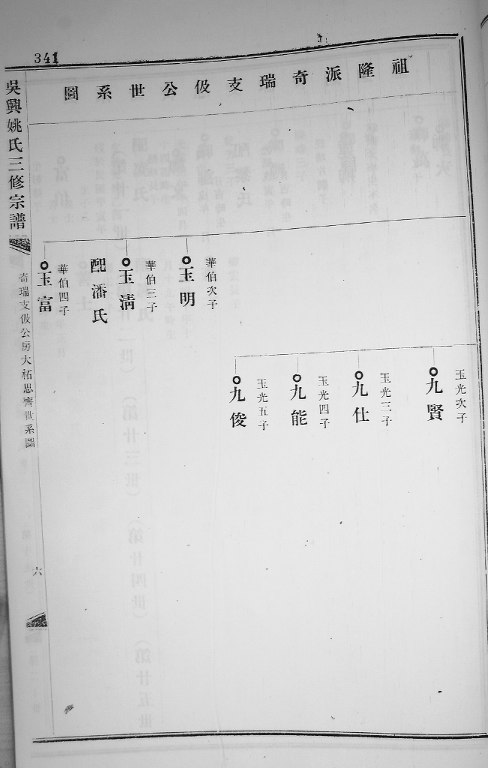 341
祖隆派奇瑞支伋公世系圖
玉光次子
九賢
玉光三子
九仕
玉光四子
九能
玉光五子
九俊
華伯次子
玉明
華伯三子
玉淸
配潘氏
華伯四子
玉富
吳興姚氏三修宗譜
奇瑞支伋公房大祏思齊世系圖
六